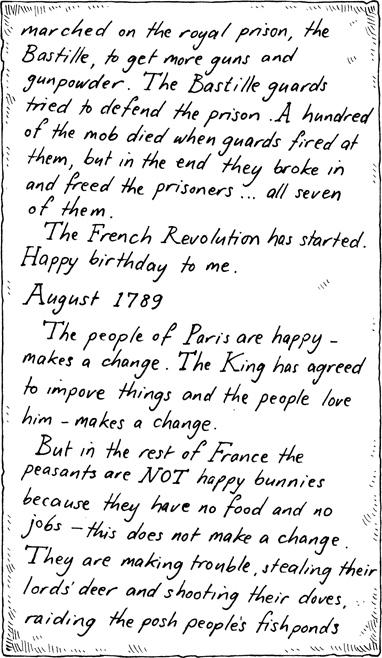 marched on the royal prison, the
Bastille, to get more guns and
gunpowder. The Bastille guards
tried to defend the prison. A hundred
of the mob died when guards fired at
them, but in the end they broke in
and freed the prisoners... all seven
of them.
The French Revolution has started.
Happy birthday to me.
August 1789
The people of Paris are happy –
makes a change. The King has agreed
to impove things and the people love
him – makes a change.
But in the rest of France the
peasants are NOT happy bunnies
because they have no food and no
jobs – this does not make a change.
They are making trouble, stealing their
lords' deer and shooting their doves,
raiding the posh people's fishponds